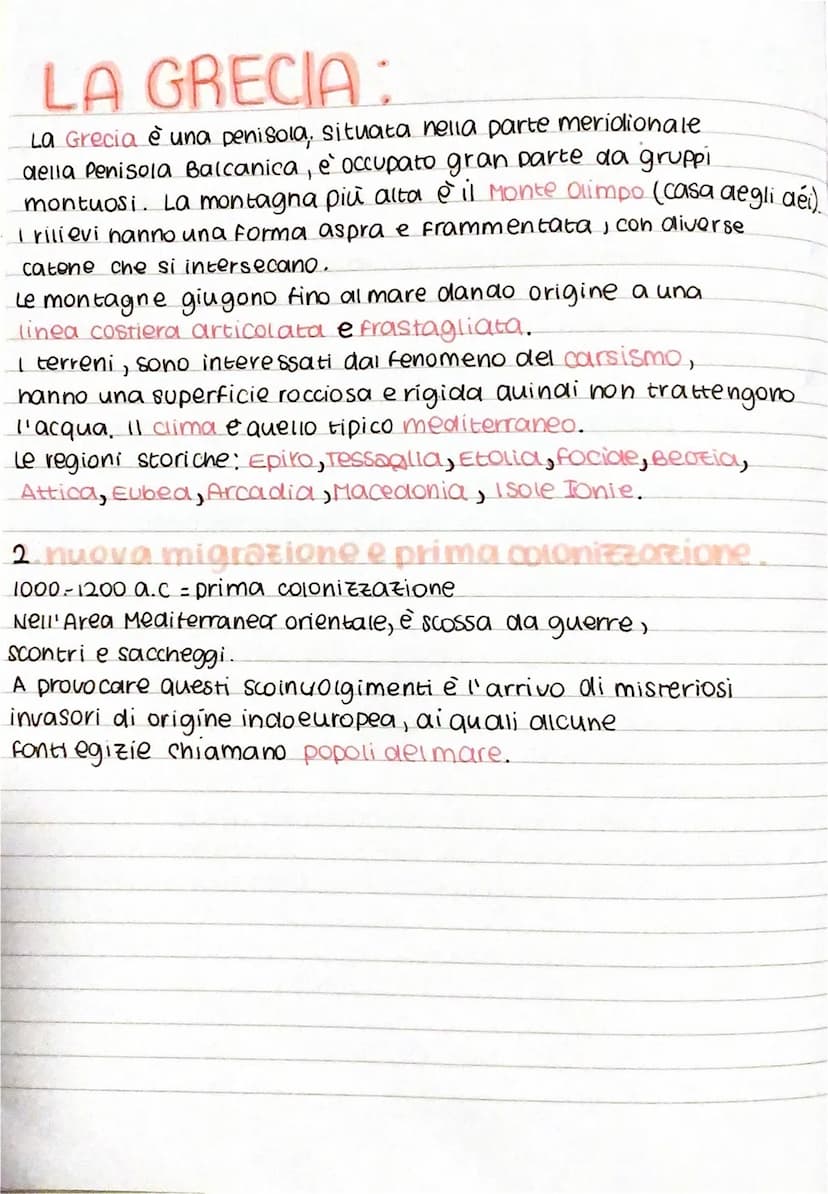 LA GRECIA:
La Grecia è una penisola, situata nella parte meridionale
della Penisola Balcanica, e' occupato gran parte da gruppi
montuosi. La montagna più alta è il Monte Olimpo (casa degli dèi)
I rilievi hanno una forma aspra e frammentata, con diverse
catene che si intersecano.
Le montagne giugono fino al mare dando origine a una
linea costiera articolata e frastagliata.
I terreni, sono interessati dal fenomeno del carsismo,
hanno una superficie rocciosa e rigida quindi non trattengono
l'acqua. Il clima è quello tipico mediterraneo.
Le regioni storiche: Epiro, Tessaglia, Etolia, Focide, Beozia,
Attica, Eubea, Arcadia, Macedonia, Isole Ionie.
2. nuova migrazione e prima colonizzazione.
1000-1200 a.C = prima colonizzazione
Nell'Area Mediterranea orientale, è scossa da guerre,
scontri e saccheggi.
A provocare questi scoinvolgimenti è l'arrivo di misteriosi
invasori di origine indoeuropea, ai quali alcune
fonti egizie chiamano popoli del mare.